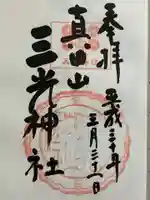 奉拝
平成三十年
三月三十一日
真田山
三光神社